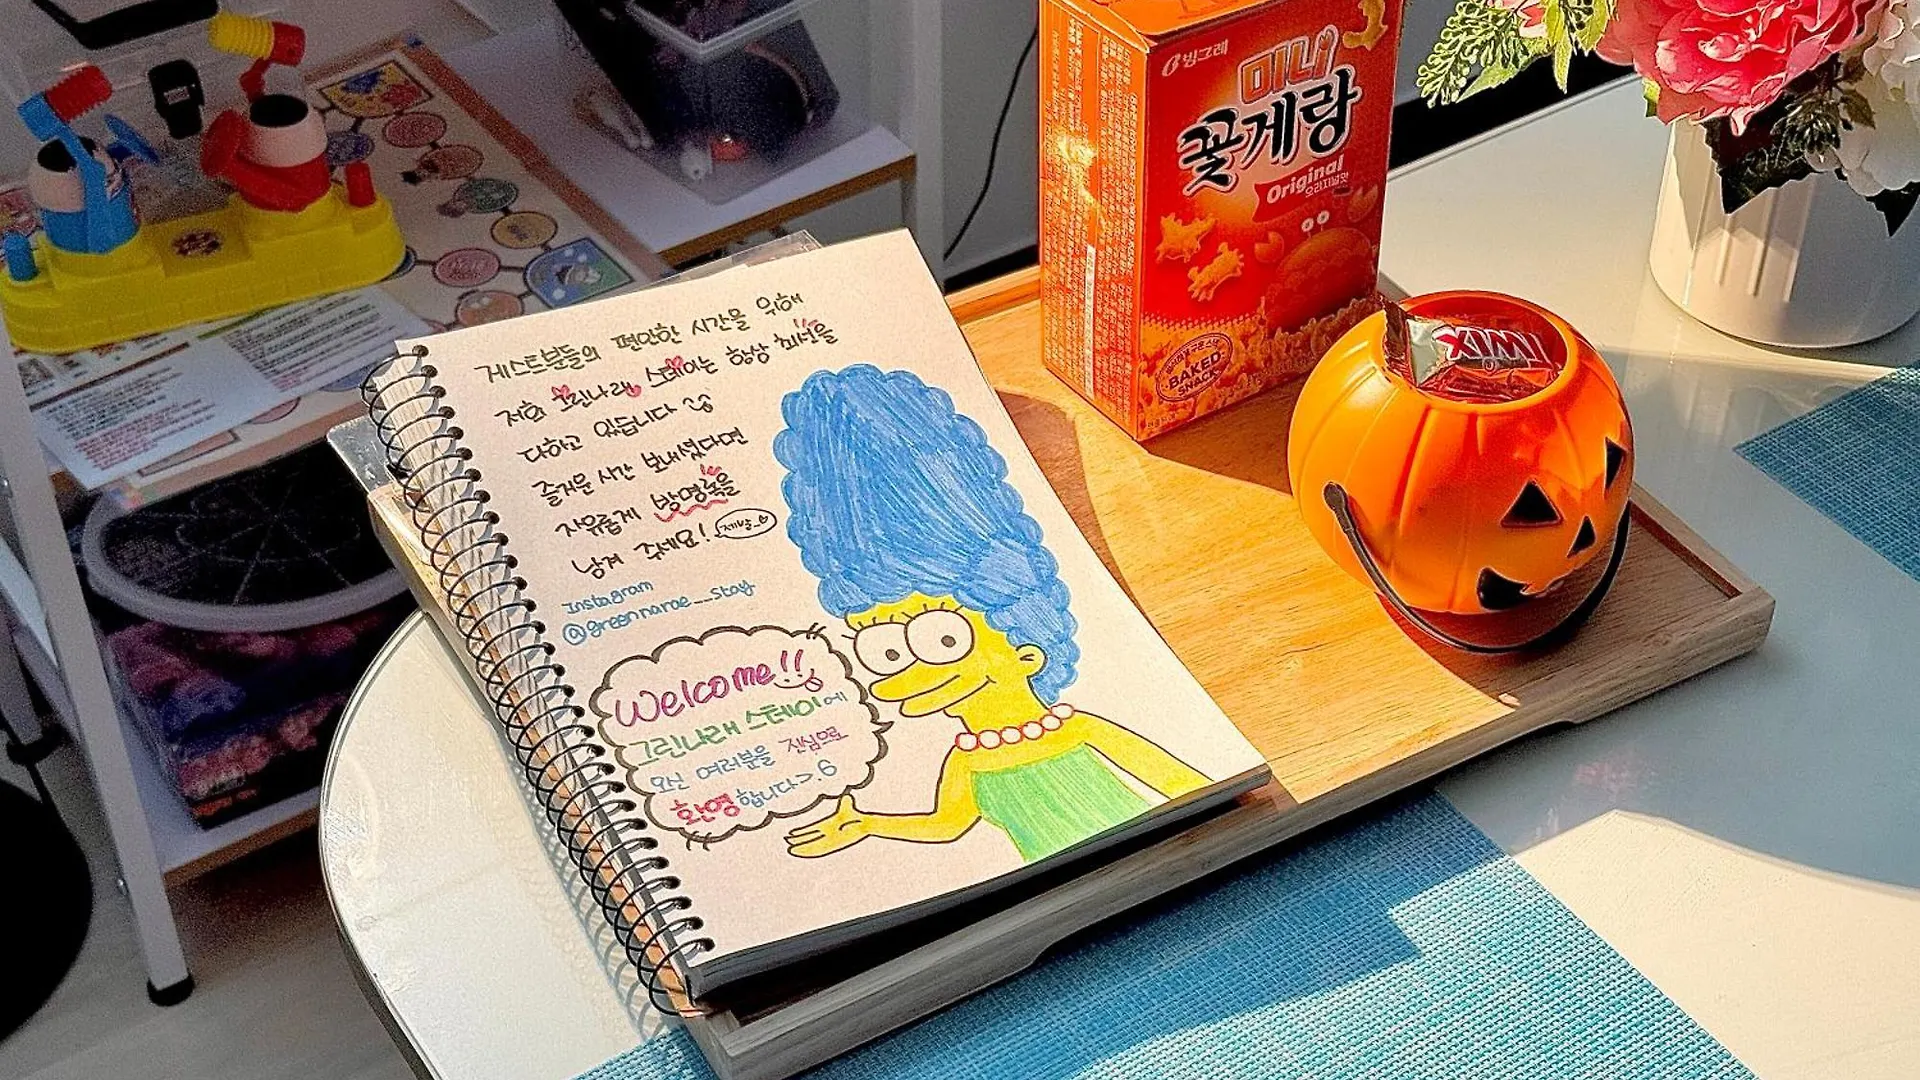 게스트분들의 편안한 시간을 위해
저희 그린나래 스테이는 항상 최선을
다하고 있습니다
즐거운 시간 보내셨다면
자유롭게 방명록을
남겨 주세요! 제발
Instagram
@greennarae__stay
Welcome!!
그린나래 스테이에
오신 여러분을 진심으로
환영합니다
빙그레
미니
꽃게랑
Original
오리지널맛
BAKED
SNACK
TWIX